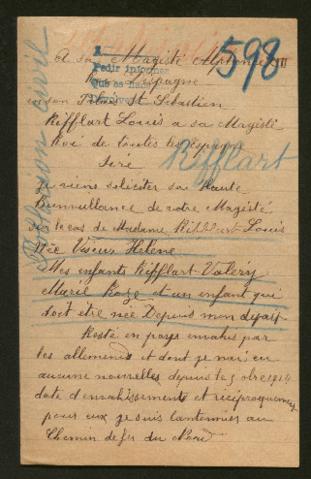 A sa Magisté Alphonse XIII
598
Pedir informes
Roi d'Espagne
a son Palais St Sébastien
Rifflart Louis a sa Magisté
Roi de toutes les Espagnes
Rifflart
Siré
Je viens soliciter sa haute
Bienveullance de votre Magisté
sur le cas de Madame Rifflart Louis
Née Viseur Hélène
Mes enfants Rifflart Valéry
Marie Roze et un enfant qui
doit être née Depuis mon départ
Resté en pays envahis par
les allemends et dont je n'ai eu
aucune nouvelles depuis le 5 obre 1914
date d'envahissement et réciproquement
pour eux je suis lanternier au
Chemin de fer du Nord